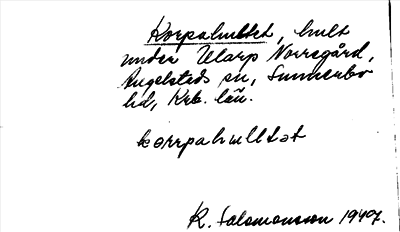 Korpahultet, hult
under Ularp Norregård,
Angelsteds sn, Sunnerbo
hd, Krb. län.
korrpahulltət
K. Salomonsson 1940?.